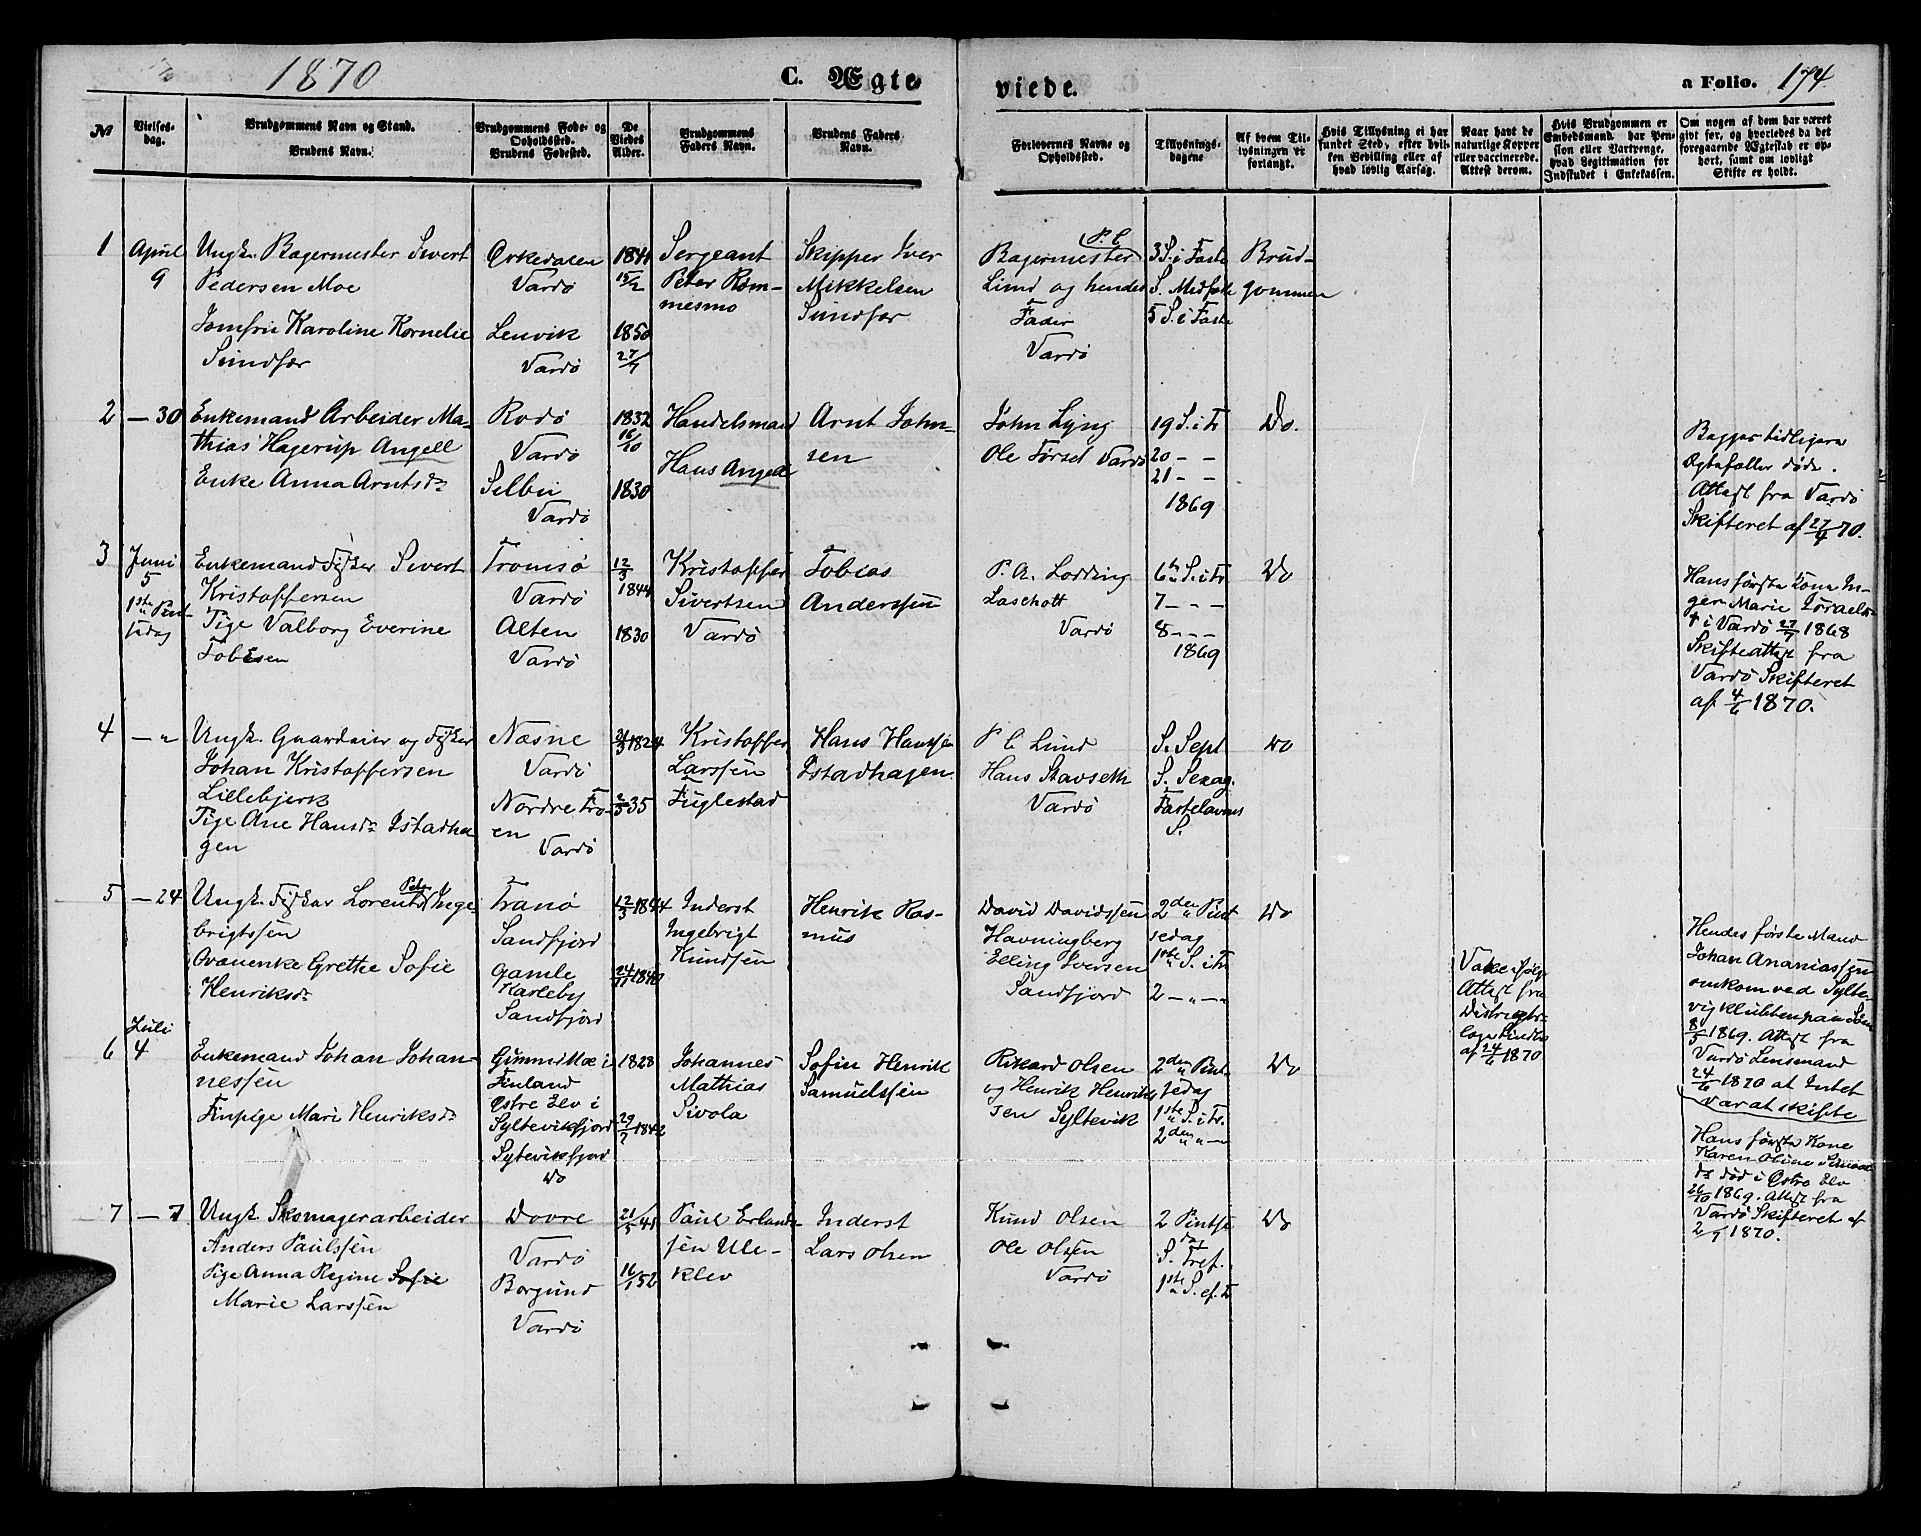 1870
C. Ægte
viede.
a Folio. 174
No
Vielses-
dag.
Brudgommens Navn og Stand.
Brudens Navn.
Brudgommens Føde- og
Opholdssted.
Brudens Fødested.
De
Viedes
Alder.
Brudgommens
Faders Navn.
Brudens Faders
Navn.
Forlovernes Navne og
Opholdssted.
Tillysnings-
dagene
Af hvem Til-
lysningen er
forlangt.
Hvis Tillysning ei har
fundet Sted, efter hvil-
ken Bevilling eller af
hvad lovlig Aarsag.
Naar havt de
naturlige Kopper
eller vaccinerede.
Attest derom.
Hvis Brudgommen er
Embedsmand, har Pen-
sion eller Vartpenge,
hvad Legitimation for
Indskudet i Enkekassen.
Om nogen af dem har været
gift før, og hvorledes da det
foregaaende Ægteskab er op-
hørt, samt om lovligt
Skifte er holdt.
1
April
9
Ungk. Bagermester Sivert
Pedersen Moe
Jomfru Karoline Kornelie
Sundfær
Orkedalen
Vardø
Lenvik
Vardø
1841
15/2
1850
27/7
Sergeant
Peter Røm-
mesmo
Skipper Iver
Mikkelsen
Sundfær
P. C.
Bagermester
Lund og hendes
Fader
Vardø
3 S. i Faste
S. Midfaste
5 S. i Faste
Brud-
gommen
2
— 30
Enkemand Arbeider Ma-
thias Hagerup Angell
Enke Anna Arntsdr
Rodø
Vardø
Selbu
Vardø
1832
16/10
1830
Handelsmand
Hans Angell
Arnt John-
sen
John Lyng
Ole Førset Vardø
19 S. i Tr
20 - -
21 - -
1869
Do.
Begges tidligere
Ægtefæller døde.
Attest fra Vardø
Skifteret af 27/4 70.
3
Juni
5
1ste Pint-
sedag
Enkemand Fisker Sivert
Kristoffersen
Pige Valborg Everine
Tobiesen
Tromsø
Vardø
Alten
Vardø
12/3
1844
1830
Kristoffer
Sivertsen
Vardø
Tobias
Anderssen
P. A. Lodding
Laschott
Vardø
6te S. i Tr
7 - - -
8 - - -
1869
Do
Hans første Kone In-
ger Marie Israels-
† i Vardø 27/7 1868
Skifteattest fra
Vardø Skifteret
af 4/6 1870.
4
— "
Ungk. Gaardeier og Fisker
Johan Kristoffersen
Lillebjerk
Pige Ane Hansdr Istadha-
gen
Næsne
Vardø
Nordre Fro-
en
Vardø
21/3 1824
2/3 35
Kristoffer
Larssen
Fuglestad
Hans Hanssen
Istadhagen
P C Lund
Hans Stavseth
Vardø
S. Sept
S. Sexag.
Fastelavns
S.
Do
5
— 24
Ungk. Fisker Lorents Peder Inge-
brigtssen
Qvænenke Grethe Sofie
Henriksdr
Tranø
Sandfjord
Gamle
Karleby
Sandfjord
12/3 1844
24/11 1840
Inderst
Ingebrigt
Knudsen
Henrik Ras-
mus
David Davidssen
Havningberg
Elling Iversen
Sandfjord
2den Pint
sedag
1ste S. i Tr
2 - " - "
Do
Vakc ifølge
Attest fra
Distrikts-
læge Lindtn
af 24/6 1870
Hendes første Mand
Johan Ananiassen
omkom ved Sylte-
vigklubben paa Søen
8/5 1869. Attest fra
Vardø Lensmand
24/6 1870 at Intet
var at skifte
6
Juli
4
Enkemand Johan Johan-
nessen
Finpige Mari Henriksdr
Gimmi Næ i
Finland
Østre Elv i
Syltevikfjord
Syltevikfjord
Do
1828
29/7 1842
Johannes
Mathias
Sivola
Sofin Henrik
Samuelssen
Rikard Olsen
og Henrik Henrik-
sen Syltevik
2den Pint-
sedag
1ste S. i Tr.
2den " - "
Do
Hans første Kone
Karen Oline Simons-
dr død i Østre Elv
26/10 1869. Attest fra
Vardø Skifteret af
2/7 1870.
7
— 7
Ungk. Skomagerarbeider
Anders Paulssen
Pige Anna Regine Sofie
Marie Larssen
Dovre
Vardø
Borgund
Vardø
21/5 41
16/1 52
Paul Erlands-
sen Ule-
klev
Inderst
Lars Olsen
Knud Olsen
Ole Olssen
Vardø
2 Pintse
dag
S. Tref.
1ste S. ef. Tr
Do